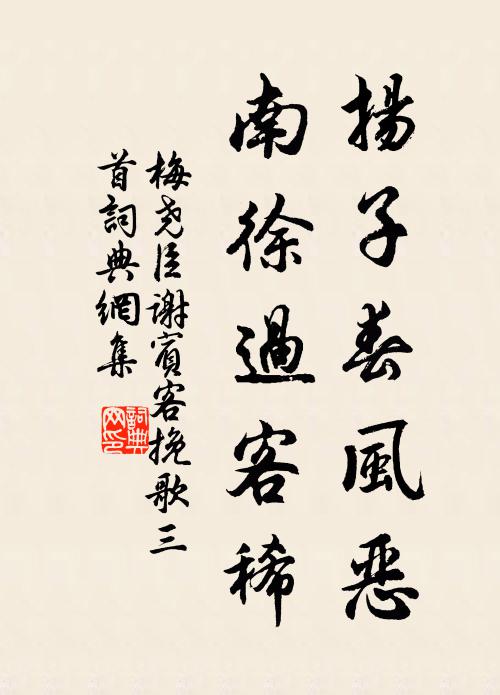 揚子春風惡
南徐過客稀
梅尧臣謝賓客挽歌三
首詞典網集
詞典
网印